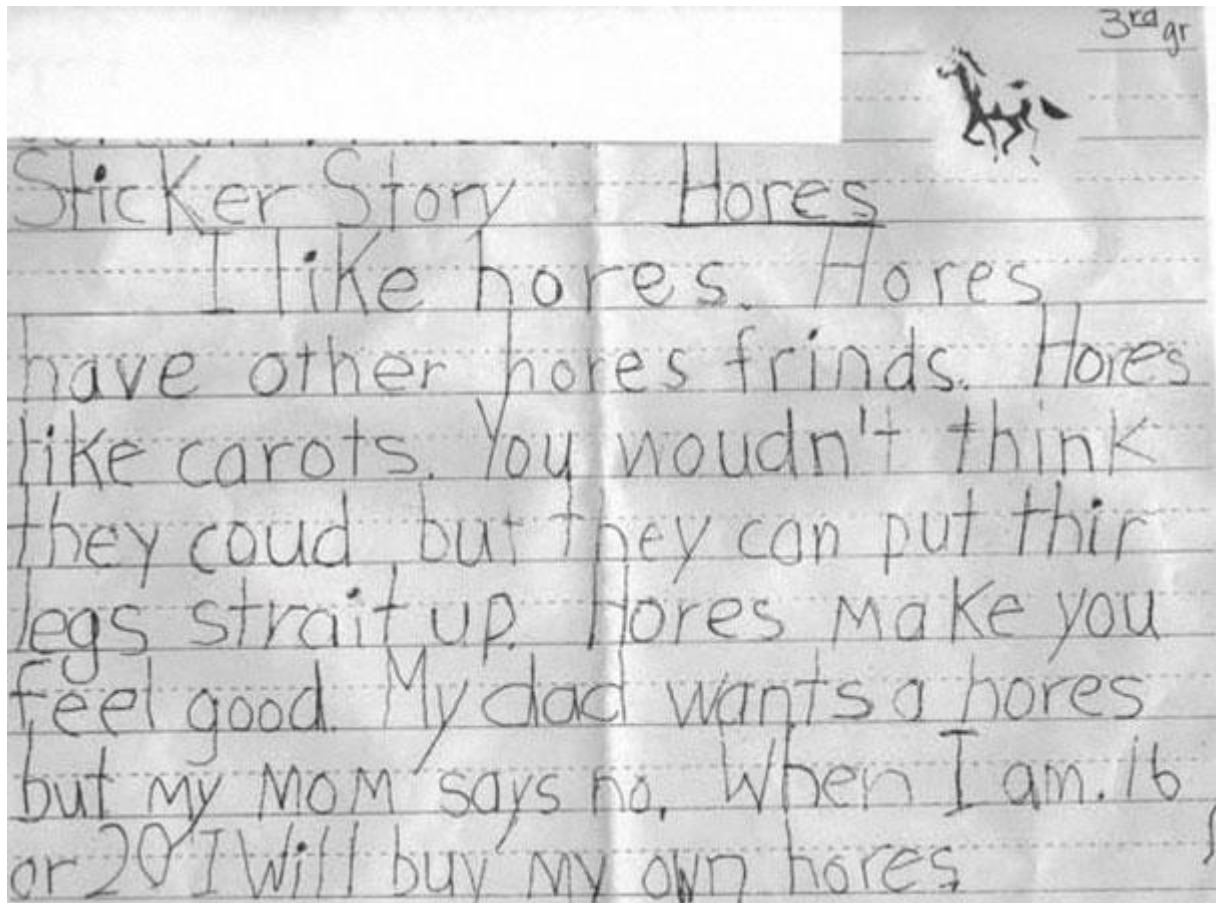 3rd gr
Sticker Story Hores
I like hores. Hores
have other hores frinds. Hores
like carots. You woudn't think
they coud but they can put thir
legs strait up. Hores make you
feel good. My dad wants a hores
but my Mom says no. When I am. 16
or 20 I will buy my own hores